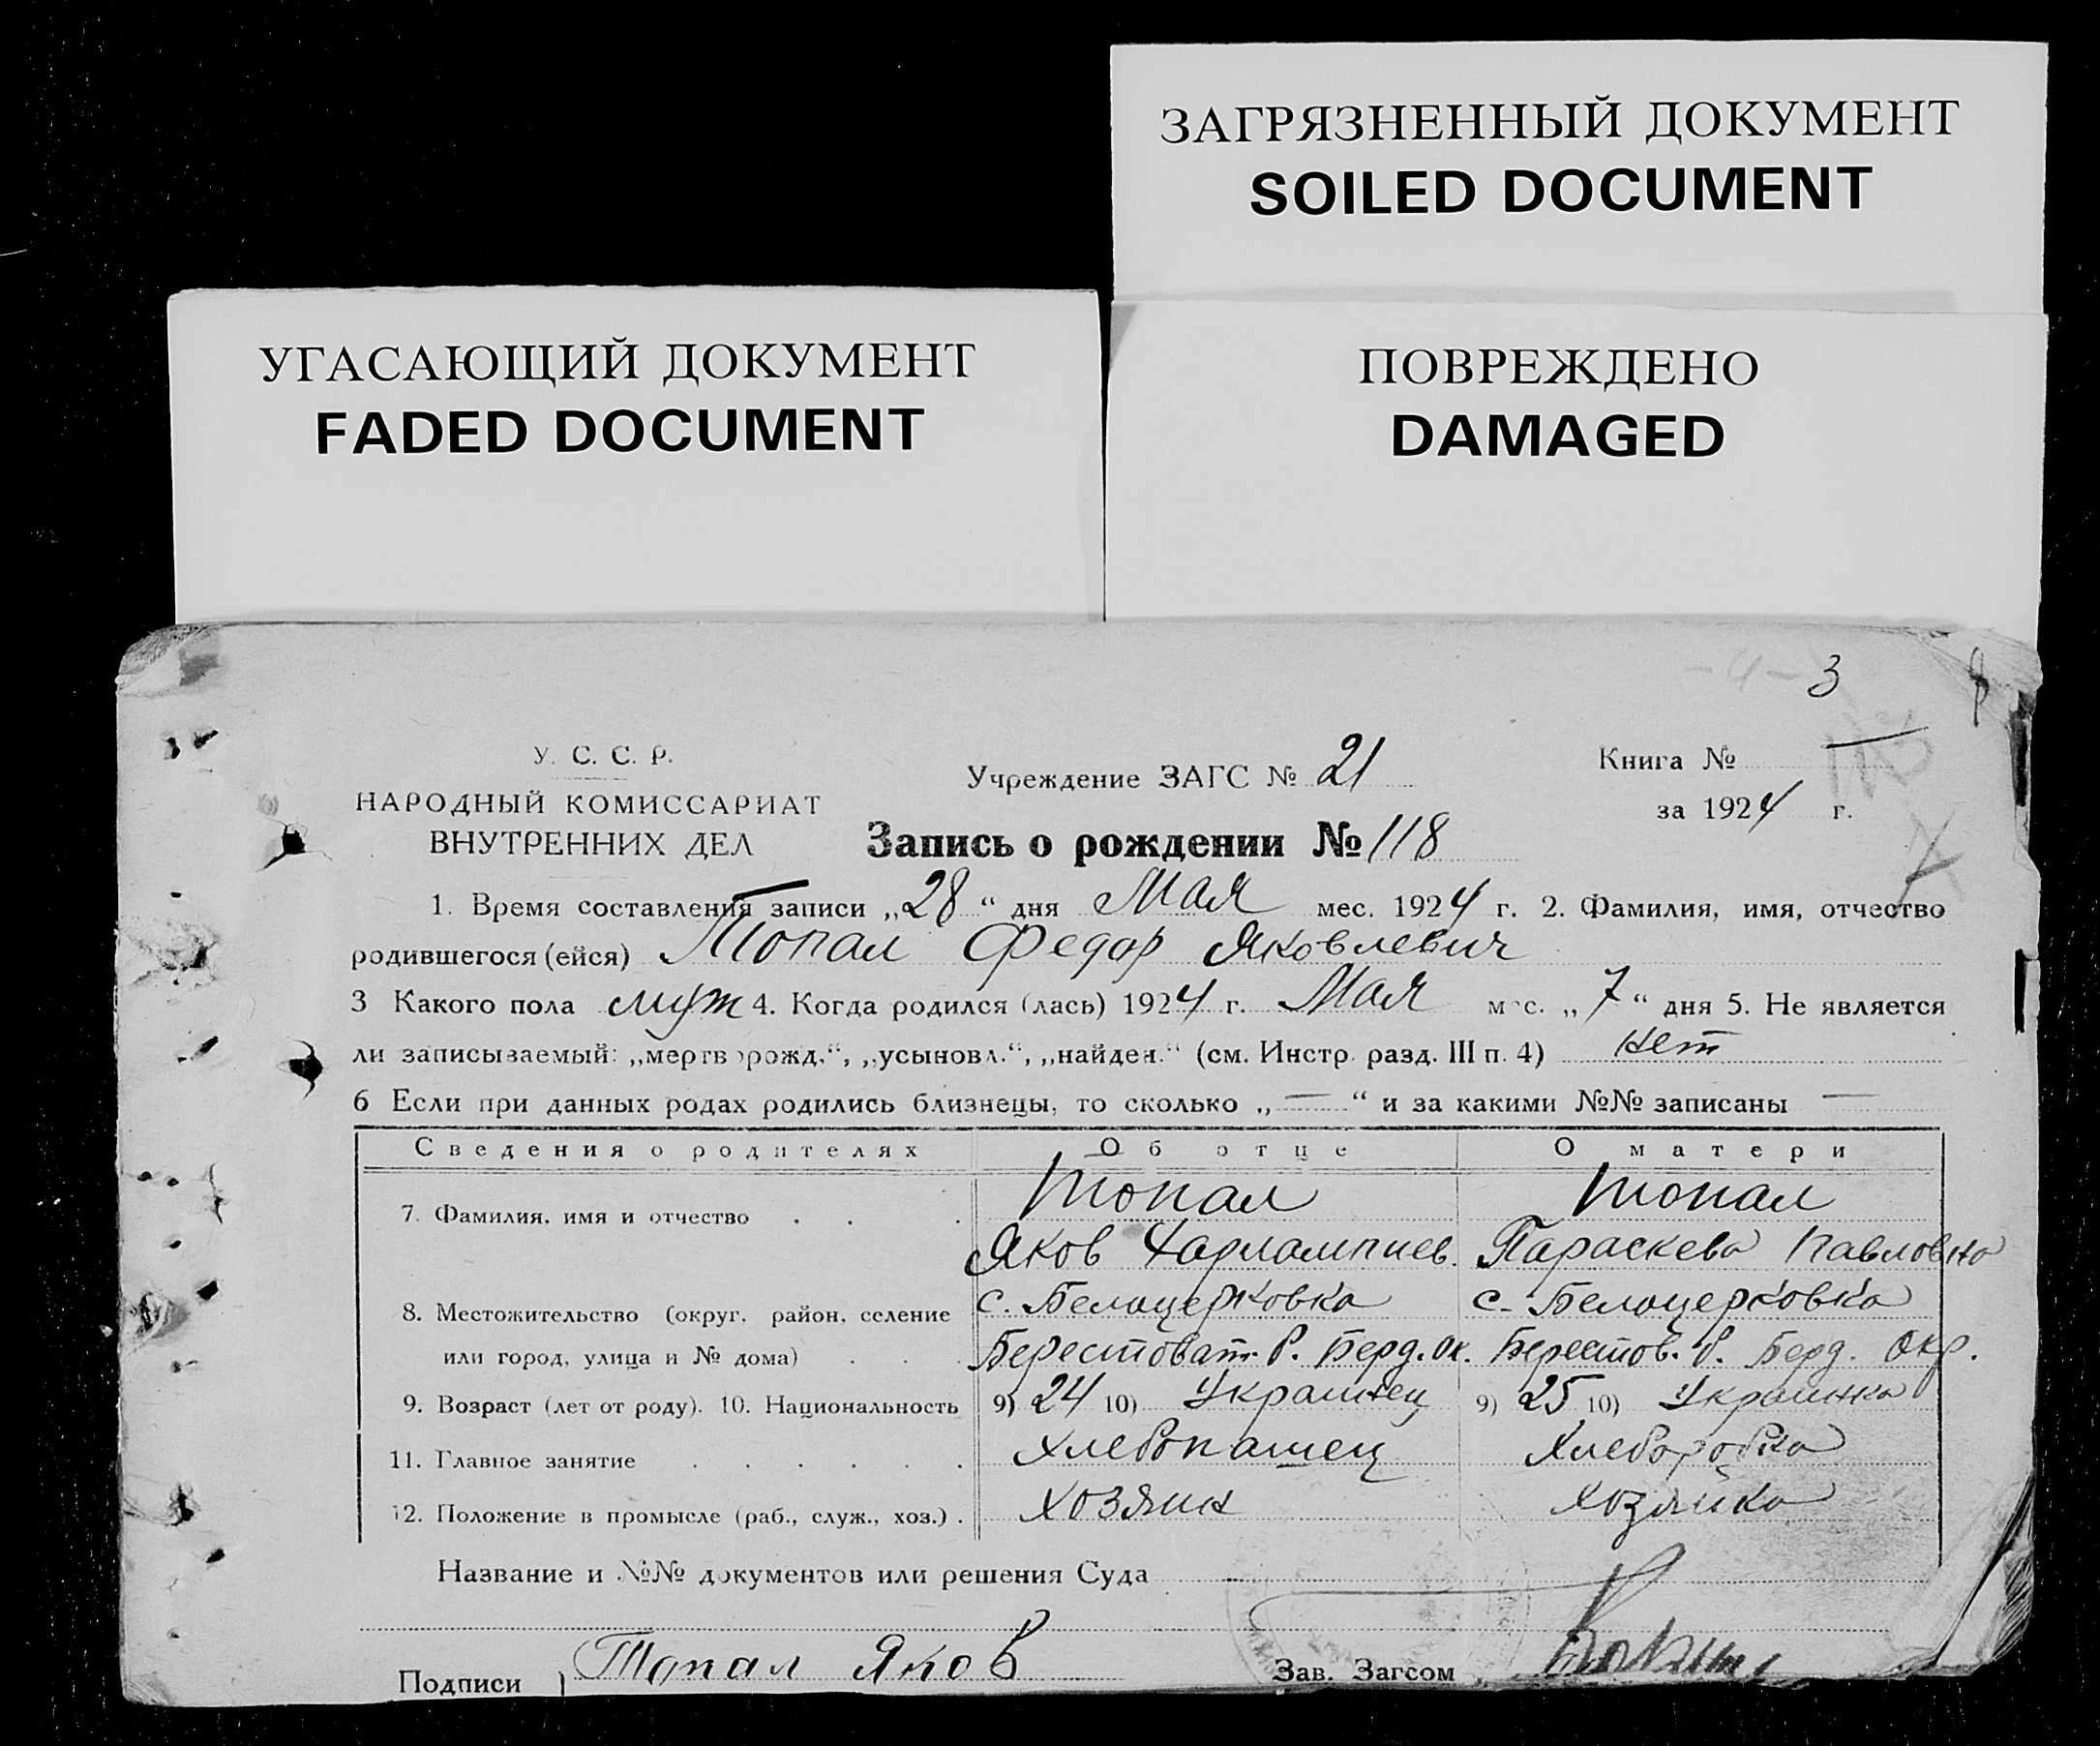 ЗАГРЯЗНЕННЫЙ ДОКУМЕНТ
SOILED DOCUMENT
УГАСАЮЩИЙ ДОКУМЕНТ
FADED DOCUMENT
ПОВРЕЖДЕНО
DAMAGED
3
У. С. С. Р.
НАРОДНЫЙ КОМИССАРИАТ
ВНУТРЕННИХ ДЕЛ
Учреждение ЗАГС № 21
Книга № —
за 1924 г.
Запись о рождении № 118
1. Время составления записи „28“ дня Мая мес. 1924 г. 2. Фамилия, имя, отчество
родившегося (ейся) Топал Федор Яковлевич
3 Какого пола муж 4. Когда родился (лась) 1924 г. Мая мес. „7“ дня 5. Не является
ли записываемый: „мертворожд.“, „усыновл.“, „найден.“ (см. Инстр. разд. III п. 4) нет
6 Если при данных родах родились близнецы, то сколько „—“ и за какими №№ записаны —
Сведения о родителях Об отце О матери
7. Фамилия, имя и отчество . . . Топал Топал
Яков Харлампиев. Параскева Павловна
8. Местожительство (округ, район, селение с. Белоцерковка с. Белоцерковка
или город, улица и № дома) . . . Берестоват. Р. Берд. Ок. Берестов. Р. Берд. Окр.
9. Возраст (лет от роду). 10. Национальность 9) 24 10) Украинец 9) 25 10) Украинка
11. Главное занятие . . . . . . Хлебопашец Хлеборобка
12. Положение в промысле (раб., служ., хоз.) . хозяин хозяйка
Название и №№ документов или решения Суда
Подписи Топал Яков Зав. Загсом